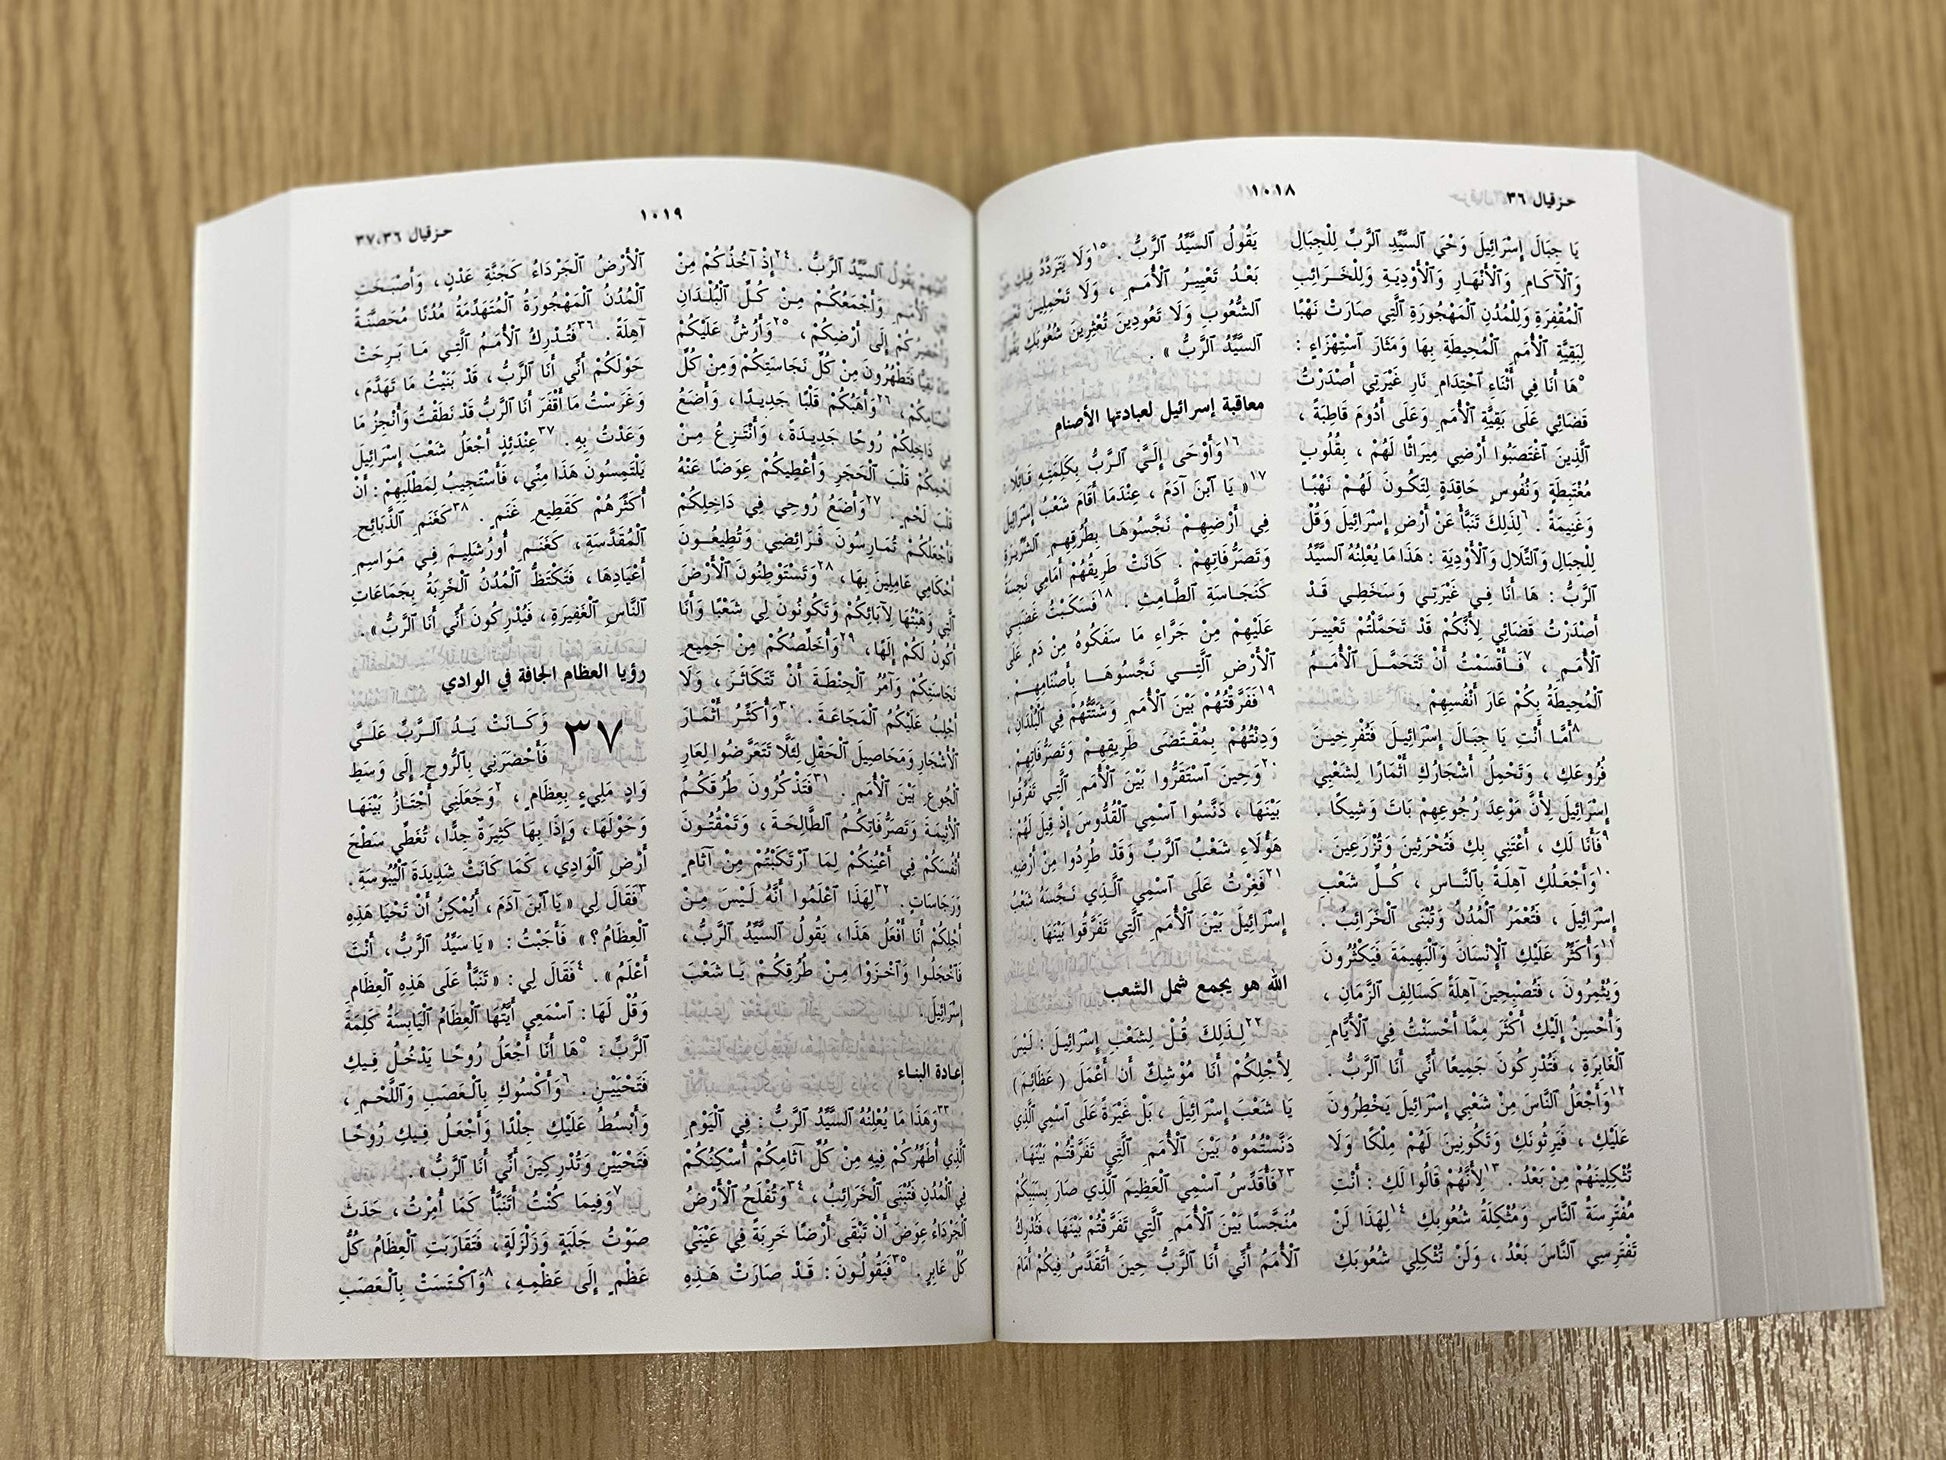 حزقيال ٣٦
١٠١٨
يَا جِبَالَ إِسْرَائِيلَ وَحْيَ ٱلسَّيِّدِ ٱلرَّبِّ لِلْجِبَالِ
وَٱلْآكَامِ وَٱلْأَنْهَارِ وَٱلْأَوْدِيَةِ وَلِلْخَرَائِبِ
ٱلْمُقْفِرَةِ وَلِلْمُدُنِ ٱلْمَهْجُورَةِ ٱلَّتِي صَارَتْ نَهْبًا
لِبَقِيَّةِ ٱلْأُمَمِ ٱلْمُحِيطَةِ بِهَا وَمَثَارَ ٱسْتِهْزَاءٍ :
٥هَا أَنَا فِي أَثْنَاءِ ٱحْتِدَامِ نَارِ غَيْرَتِي أَصْدَرْتُ
قَضَائِي عَلَى بَقِيَّةِ ٱلْأُمَمِ وَعَلَى أَدُومَ قَاطِبَةً ،
ٱلَّذِينَ ٱغْتَصَبُوا أَرْضِي مِيرَاثًا لَهُمْ ، بِقُلُوبٍ
مُغْتَبِطَةٍ وَنُفُوسٍ حَاقِدَةٍ لِتَكُونَ لَهُمْ نَهْبًا
وَغَنِيمَةً . ٦لِذَلِكَ تَنَبَّأْ عَنْ أَرْضِ إِسْرَائِيلَ وَقُلْ
لِلْجِبَالِ وَٱلتِّلَالِ وَٱلْأَوْدِيَةِ : هَذَا مَا يُعْلِنُهُ ٱلسَّيِّدُ
ٱلرَّبُّ : هَا أَنَا فِي غَيْرَتِي وَسَخَطِي قَدْ
أَصْدَرْتُ قَضَائِي لِأَنَّكُمْ قَدْ تَحَمَّلْتُمْ تَعْيِيرَ
ٱلْأُمَمِ ، ٧فَأَقْسَمْتُ أَنْ تَتَحَمَّلَ ٱلْأُمَمُ
ٱلْمُحِيطَةُ بِكُمْ عَارَ أَنْفُسِهِمْ .
٨أَمَّا أَنْتِ يَا جِبَالَ إِسْرَائِيلَ فَتُفْرِخِينَ
فُرُوعَكِ ، وَتَحْمِلُ أَشْجَارُكِ أَثْمَارًا لِشَعْبِي
إِسْرَائِيلَ لِأَنَّ مَوْعِدَ رُجُوعِهِمْ بَاتَ وَشِيكًا .
٩فَأَنَا لَكِ ، أَعْتَنِي بِكِ فَتُحْرَثِينَ وَتُزْرَعِينَ .
١٠وَأَجْعَلُكِ آهِلَةً بِٱلنَّاسِ ، كُلِّ شَعْبِ
إِسْرَائِيلَ ، فَتُعْمَرُ ٱلْمُدُنُ وَتُبْنَى ٱلْخَرَائِبُ .
١١وَأُكَثِّرُ عَلَيْكِ ٱلْإِنْسَانَ وَٱلْبَهِيمَةَ فَيَكْثُرُونَ
وَيُثْمِرُونَ ، فَتُصْبِحِينَ آهِلَةً كَسَالِفِ ٱلزَّمَانِ ،
وَأُحْسِنُ إِلَيْكِ أَكْثَرَ مِمَّا أَحْسَنْتُ فِي ٱلْأَيَّامِ
ٱلْغَابِرَةِ ، فَتُدْرِكُونَ جَمِيعًا أَنِّي أَنَا ٱلرَّبُّ .
١٢وَأَجْعَلُ ٱلنَّاسَ مِنْ شَعْبِي إِسْرَائِيلَ يَخْطِرُونَ
عَلَيْكِ ، فَيَرِثُونَكِ وَتَكُونِينَ لَهُمْ مِلْكًا وَلَا
تُثْكِلِينَهُمْ مِنْ بَعْدُ . ١٣لِأَنَّهُمْ قَالُوا لَكِ : أَنْتِ
مُفْتَرِسَةُ ٱلنَّاسِ وَمُثْكِلَةُ شُعُوبِكِ ١٤لِهَذَا لَنْ
تَفْتَرِسِي ٱلنَّاسَ بَعْدُ ، وَلَنْ تُثْكِلِي شُعُوبَكِ
يَقُولُ ٱلسَّيِّدُ ٱلرَّبُّ . ١٥وَلَا يَتَرَدَّدُ فِيكِ مِنْ
بَعْدُ تَعْيِيرُ ٱلْأُمَمِ ، وَلَا تَحْمِلِينَ تَعْيِيرَ
ٱلشُّعُوبِ وَلَا تَعُودِينَ تُعْثِرِينَ شُعُوبَكِ يَقُولُ
ٱلسَّيِّدُ ٱلرَّبُّ » .
معاقبة إسرائيل لعبادتها الأصنام
١٦وَأَوْحَى إِلَيَّ ٱلرَّبُّ بِكَلِمَتِهِ قَائِلًا :
١٧« يَا ٱبْنَ آدَمَ ، عِنْدَمَا أَقَامَ شَعْبُ إِسْرَائِيلَ
فِي أَرْضِهِمْ نَجَّسُوهَا بِطُرُقِهِمِ ٱلشِّرِّيرَةِ
وَتَصَرُّفَاتِهِمْ . كَانَتْ طَرِيقُهُمْ أَمَامِي نَجِسَةً
كَنَجَاسَةِ ٱلطَّامِثِ . ١٨فَسَكَبْتُ غَضَبِي
عَلَيْهِمْ مِنْ جَرَّاءِ مَا سَفَكُوهُ مِنْ دَمٍ عَلَى
ٱلْأَرْضِ ٱلَّتِي نَجَّسُوهَا بِأَصْنَامِهِمْ .
١٩فَفَرَّقْتُهُمْ بَيْنَ ٱلْأُمَمِ وَشَتَّتُّهُمْ فِي ٱلْبُلْدَانِ ،
وَدِنْتُهُمْ بِمُقْتَضَى طَرِيقِهِمْ وَتَصَرُّفَاتِهِمْ .
٢٠وَحِينَ ٱسْتَقَرُّوا بَيْنَ ٱلْأُمَمِ ٱلَّتِي تَفَرَّقُوا
بَيْنَهَا ، دَنَّسُوا ٱسْمِي ٱلْقُدُّوسَ إِذْ قِيلَ لَهُمْ :
هَؤُلَاءِ شَعْبُ ٱلرَّبِّ وَقَدْ طُرِدُوا مِنْ أَرْضِهِ
٢١فَغِرْتُ عَلَى ٱسْمِي ٱلَّذِي نَجَّسَهُ شَعْبُ
إِسْرَائِيلَ بَيْنَ ٱلْأُمَمِ ٱلَّتِي تَفَرَّقُوا بَيْنَهَا .
الله هو يجمع شمل الشعب
٢٢لِذَلِكَ قُلْ لِشَعْبِ إِسْرَائِيلَ : لَيْسَ
لِأَجْلِكُمْ أَنَا مُوْشِكٌ أَنْ أَعْمَلَ ( عَظَائِمَ )
يَا شَعْبَ إِسْرَائِيلَ ، بَلْ غَيْرَةً عَلَى ٱسْمِي ٱلَّذِي
دَنَّسْتُمُوهُ بَيْنَ ٱلْأُمَمِ ٱلَّتِي تَفَرَّقْتُمْ بَيْنَهَا .
٢٣فَأُقَدِّسُ ٱسْمِي ٱلْعَظِيمَ ٱلَّذِي صَارَ بِسَبَبِكُمْ
مُنَجَّسًا بَيْنَ ٱلْأُمَمِ ٱلَّتِي تَفَرَّقْتُمْ بَيْنَهَا ، فَتُدْرِكُ
ٱلْأُمَمُ أَنِّي أَنَا ٱلرَّبُّ حِينَ أَتَقَدَّسُ فِيكُمْ أَمَامَ
١٠١٩
حزقيال ٣٧،٣٦
أَعْيُنِهِمْ يَقُولُ ٱلسَّيِّدُ ٱلرَّبُّ . ٢٤إِذْ آخُذُكُمْ مِنْ
بَيْنِ ٱلْأُمَمِ وَأَجْمَعُكُمْ مِنْ كُلِّ ٱلْبُلْدَانِ
وَأُحْضِرُكُمْ إِلَى أَرْضِكُمْ ، ٢٥وَأَرُشُّ عَلَيْكُمْ
مَاءً نَقِيًّا فَتَطْهُرُونَ مِنْ كُلِّ نَجَاسَتِكُمْ وَمِنْ كُلِّ
أَصْنَامِكُمْ ، ٢٦وَأَهَبُكُمْ قَلْبًا جَدِيدًا ، وَأَضَعُ
فِي دَاخِلِكُمْ رُوحًا جَدِيدَةً ، وَأَنْتَزِعُ مِنْ
لَحْمِكُمْ قَلْبَ ٱلْحَجَرِ وَأُعْطِيكُمْ عِوَضًا عَنْهُ
قَلْبَ لَحْمٍ . ٢٧وَأَضَعُ رُوحِي فِي دَاخِلِكُمْ
فَأَجْعَلُكُمْ تُمَارِسُونَ فَرَائِضِي وَتُطِيعُونَ
أَحْكَامِي عَامِلِينَ بِهَا ، ٢٨وَتَسْتَوْطِنُونَ ٱلْأَرْضَ
ٱلَّتِي وَهَبْتُهَا لِآبَائِكُمْ وَتَكُونُونَ لِي شَعْبًا وَأَنَا
أَكُونُ لَكُمْ إِلَهًا ، ٢٩وَأُخَلِّصُكُمْ مِنْ جَمِيعِ
نَجَاسَتِكُمْ وَآمُرُ ٱلْحِنْطَةَ أَنْ تَتَكَاثَرَ ، وَلَا
أَجْلِبُ عَلَيْكُمُ ٱلْمَجَاعَةَ . ٣٠وَأُكَثِّرُ أَثْمَارَ
ٱلْأَشْجَارِ وَمَحَاصِيلَ ٱلْحَقْلِ لِئَلَّا تَتَعَرَّضُوا لِعَارِ
ٱلْجُوعِ بَيْنَ ٱلْأُمَمِ . ٣١فَتَذْكُرُونَ طُرُقَكُمُ
ٱلْأَثِيمَةَ وَتَصَرُّفَاتِكُمُ ٱلطَّالِحَةَ ، وَتَمْقُتُونَ
أَنْفُسَكُمْ فِي أَعْيُنِكُمْ لِمَا ٱرْتَكَبْتُمْ مِنْ آثَامٍ
وَرَجَاسَاتٍ . ٣٢لِهَذَا ٱعْلَمُوا أَنَّهُ لَيْسَ مِنْ
أَجْلِكُمْ أَنَا أَفْعَلُ هَذَا ، يَقُولُ ٱلسَّيِّدُ ٱلرَّبُّ ،
فَٱخْجَلُوا وَٱخْزَوْا مِنْ طُرُقِكُمْ يَا شَعْبَ
إِسْرَائِيلَ .
إعادة البناء
٣٣وَهَذَا مَا يُعْلِنُهُ ٱلسَّيِّدُ ٱلرَّبُّ : فِي ٱلْيَوْمِ
ٱلَّذِي أُطَهِّرُكُمْ فِيهِ مِنْ كُلِّ آثَامِكُمْ أُسْكِنُكُمْ
فِي ٱلْمُدُنِ فَتُبْنَى ٱلْخَرَائِبُ ، ٣٤وَتُفْلَحُ ٱلْأَرْضُ
ٱلْجَرْدَاءُ عِوَضَ أَنْ تَبْقَى أَرْضًا خَرِبَةً فِي عَيْنَيْ
كُلِّ عَابِرٍ . ٣٥فَيَقُولُونَ : قَدْ صَارَتْ هَذِهِ
ٱلْأَرْضُ ٱلْجَرْدَاءُ كَجَنَّةِ عَدْنٍ ، وَأَصْبَحَتِ
ٱلْمُدُنُ ٱلْمَهْجُورَةُ ٱلْمُتَهَدِّمَةُ مُدُنًا مُحَصَّنَةً
آهِلَةً . ٣٦فَتُدْرِكُ ٱلْأُمَمُ ٱلَّتِي مَا بَرِحَتْ
حَوْلَكُمْ أَنِّي أَنَا ٱلرَّبُّ ، قَدْ بَنَيْتُ مَا تَهَدَّمَ ،
وَغَرَسْتُ مَا أَقْفَرَ أَنَا ٱلرَّبُّ قَدْ نَطَقْتُ وَأُنْجِزُ مَا
وَعَدْتُ بِهِ . ٣٧عِنْدَئِذٍ أَجْعَلُ شَعْبَ إِسْرَائِيلَ
يَلْتَمِسُونَ هَذَا مِنِّي ، فَأَسْتَجِيبُ لِمَطْلَبِهِمْ : أَنْ
أُكَثِّرَهُمْ كَقَطِيعِ غَنَمٍ . ٣٨كَغَنَمِ ٱلذَّبَائِحِ
ٱلْمُقَدَّسَةِ ، كَغَنَمِ أُورُشَلِيمَ فِي مَوَاسِمِ
أَعْيَادِهَا ، فَتَكْتَظُّ ٱلْمُدُنُ ٱلْخَرِبَةُ بِجَمَاعَاتِ
ٱلنَّاسِ ٱلْغَفِيرَةِ ، فَيُدْرِكُونَ أَنِّي أَنَا ٱلرَّبُّ » .
رؤيا العظام الجافة في الوادي
٣٧ وَكَانَتْ يَدُ ٱلرَّبِّ عَلَيَّ
فَأَحْضَرَنِي بِٱلرُّوحِ إِلَى وَسَطِ
وَادٍ مَلِيءٍ بِعِظَامٍ ، ٢وَجَعَلَنِي أَجْتَازُ بَيْنَهَا
وَحَوْلَهَا ، وَإِذَا بِهَا كَثِيرَةٌ جِدًّا ، تُغَطِّي سَطْحَ
أَرْضِ ٱلْوَادِي ، كَمَا كَانَتْ شَدِيدَةَ ٱلْيُبُوسَةِ .
٣فَقَالَ لِي « يَا ٱبْنَ آدَمَ ، أَيُمْكِنُ أَنْ تَحْيَا هَذِهِ
ٱلْعِظَامُ؟ » فَأَجَبْتُ : « يَا سَيِّدُ ٱلرَّبُّ ، أَنْتَ
أَعْلَمُ » . ٤فَقَالَ لِي : « تَنَبَّأْ عَلَى هَذِهِ ٱلْعِظَامِ
وَقُلْ لَهَا : ٱسْمَعِي أَيَّتُهَا ٱلْعِظَامُ ٱلْيَابِسَةُ كَلِمَةَ
ٱلرَّبِّ : ٥هَا أَنَا أَجْعَلُ رُوحًا يَدْخُلُ فِيكِ
فَتَحْيَيْنِ . ٦وَأَكْسُوكِ بِٱلْعَصَبِ وَٱللَّحْمِ ،
وَأَبْسُطُ عَلَيْكِ جِلْدًا وَأَجْعَلُ فِيكِ رُوحًا
فَتَحْيَيْنِ وَتُدْرِكِينَ أَنِّي أَنَا ٱلرَّبُّ » .
٧وَفِيمَا كُنْتُ أَتَنَبَّأُ كَمَا أُمِرْتُ ، حَدَثَ
صَوْتُ جَلَبَةٍ وَزَلْزَلَةٍ ، فَتَقَارَبَتِ ٱلْعِظَامُ كُلُّ
عَظْمٍ إِلَى عَظْمِهِ ، ٨وَٱكْتَسَتْ بِٱلْعَصَبِ